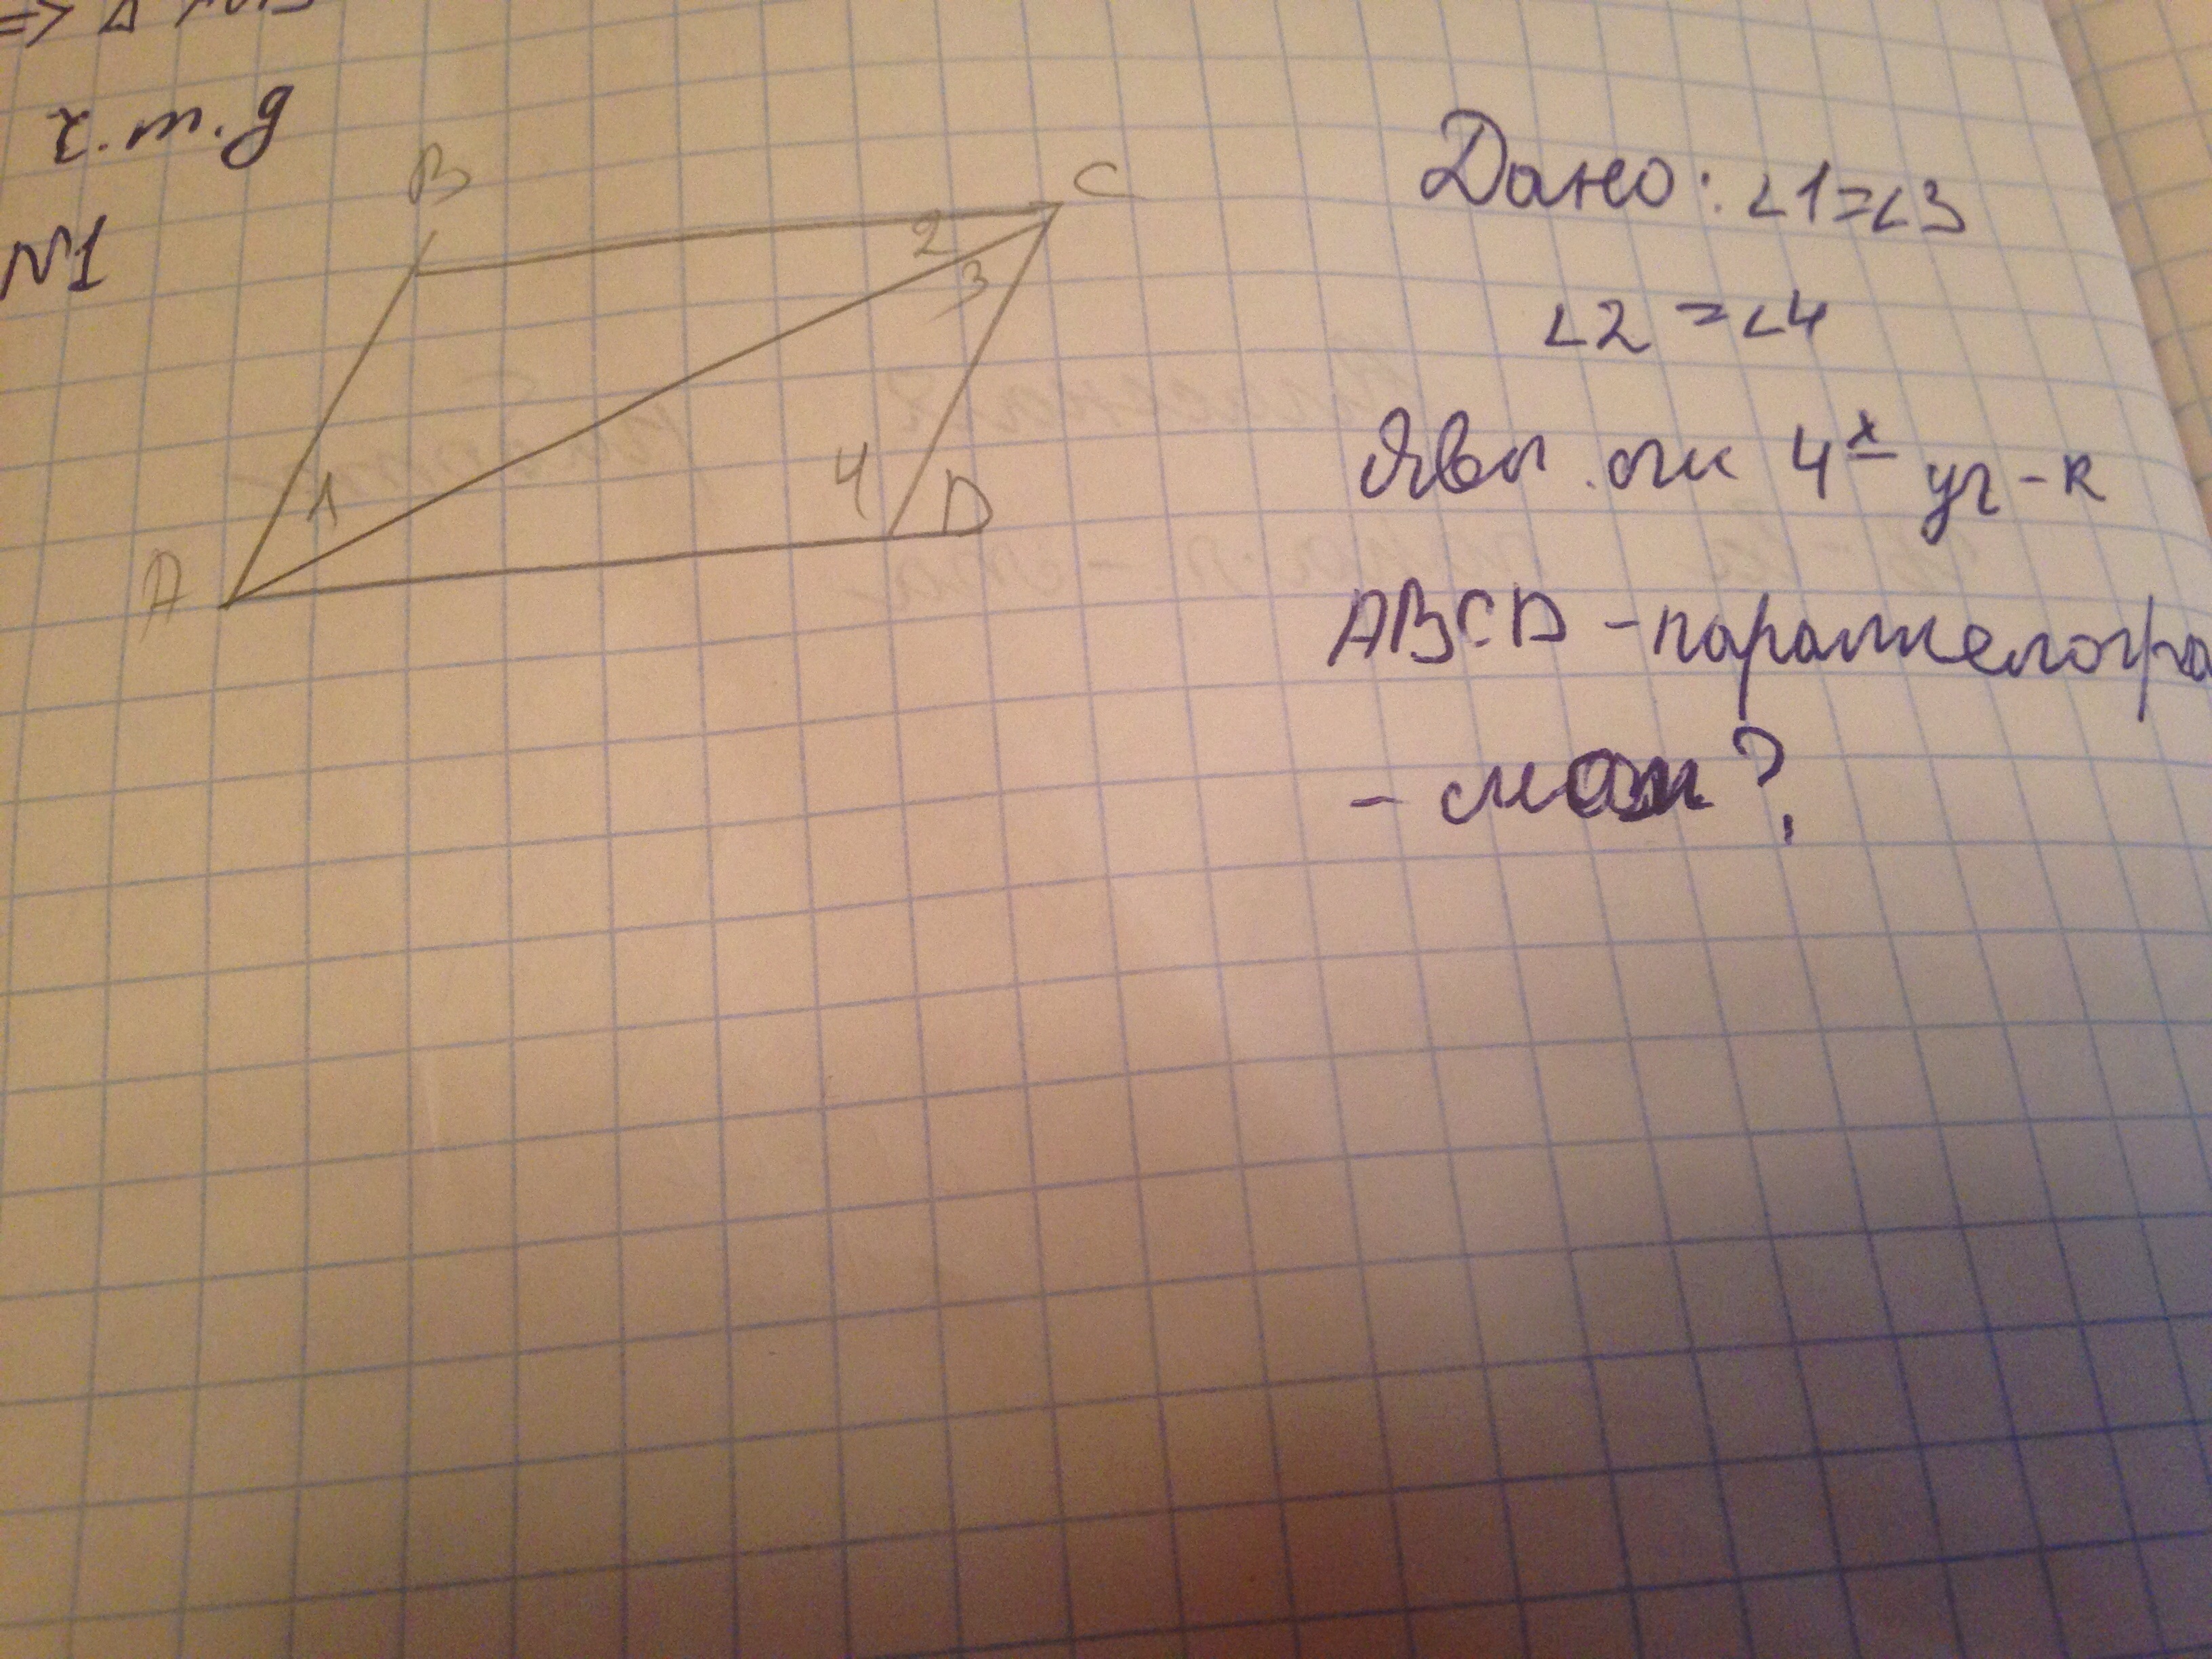 => Δ
ч.т.д
N1
B
C
2
3
1
4
D
A
Дано: ∠1=∠3
∠2=∠4
Явл. ли 4х уг-к
ABCD - параллелогра
- мом?